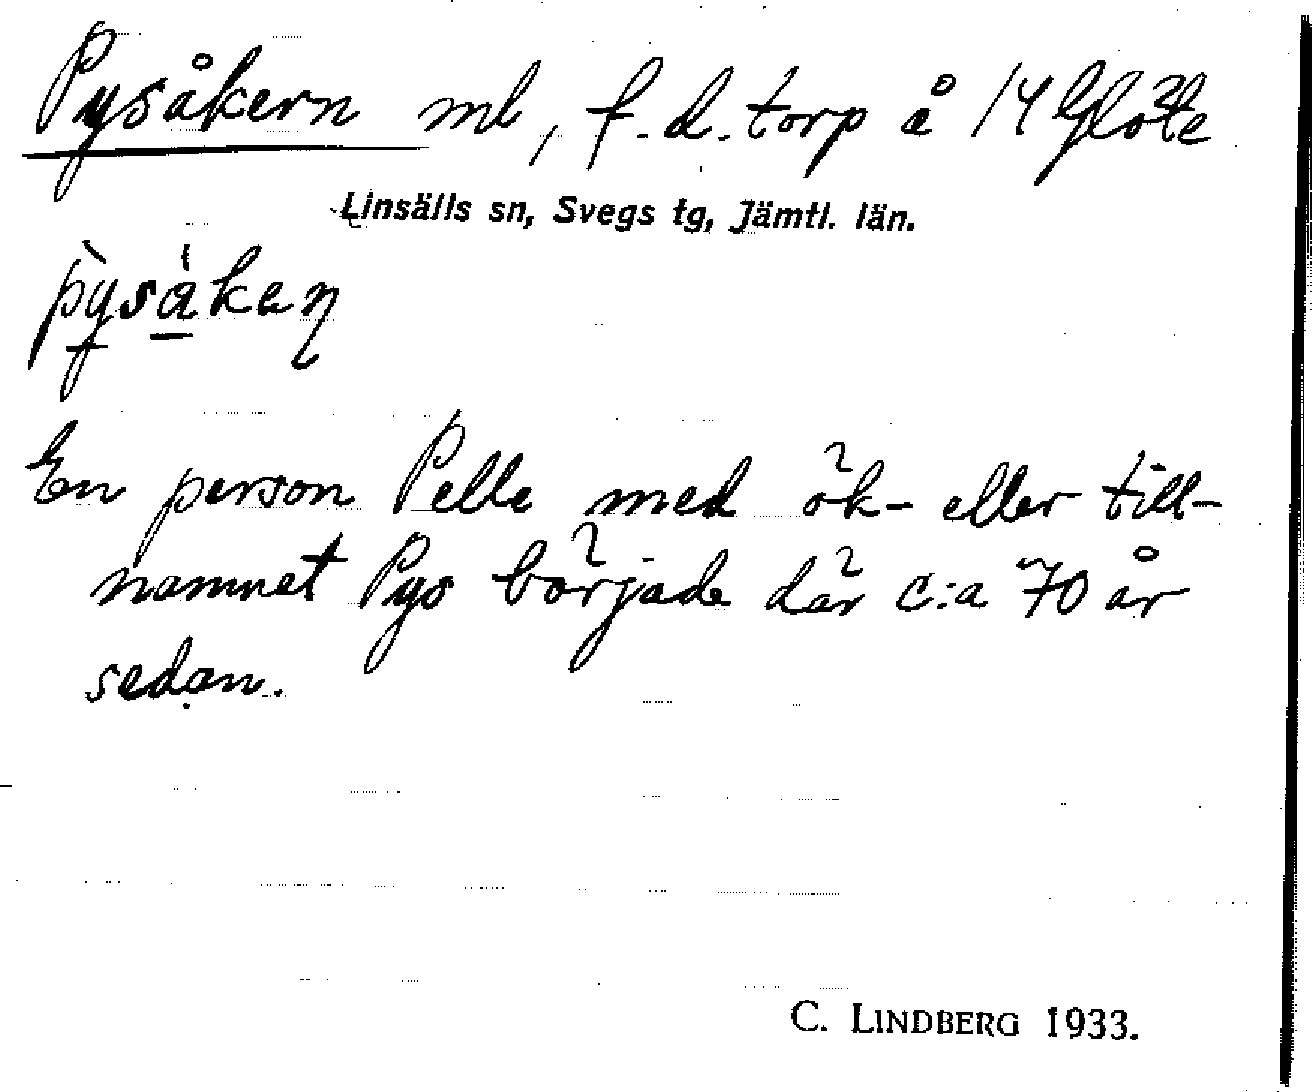 Pysåkern ml, f.d. torp å 14 Glöte
Linsälls sn, Svegs tg, Jämtl. län.
pỳsåkaɳ
En person Pelle med ök- eller till-
namnet Pys började där c:a 70 år
sedan.
C. LINDBERG 1933.